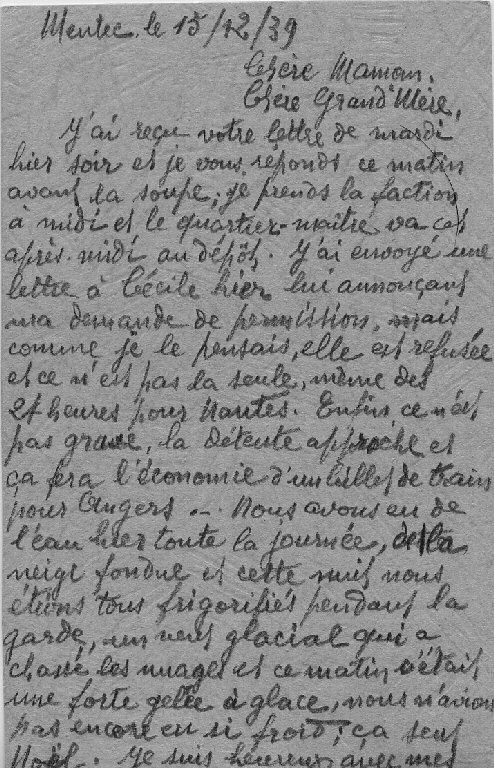 Mentec, le 15/12/39
Chère Maman,
Chère Grand'Mère,
J'ai reçu votre lettre de mardi
hier soir et je vous réponds ce matin
avant la soupe; je prends la faction
à midi et le quartier-maître va cet
après-midi au dépôt. J'ai envoyé une
lettre à Cécile hier lui annonçant
ma demande de permission, mais
comme je le pensais, elle est refusée
et ce n'est pas la seule, même des
24 heures pour Nantes. Enfin ce n'est
pas grave, la détente approche et
ça fera l'économie d'un billet de train
pour Angers.-. Nous avons eu de
l'eau hier toute la journée, de la
neige fondue et cette nuit nous
étions tous frigorifiés pendant la
garde, un vent glacial qui a
chassé les nuages et ce matin c'était
une forte gelée à glace, nous n'avions
pas encore eu si froid; ça sent
Noël. Je suis heureux avec mes